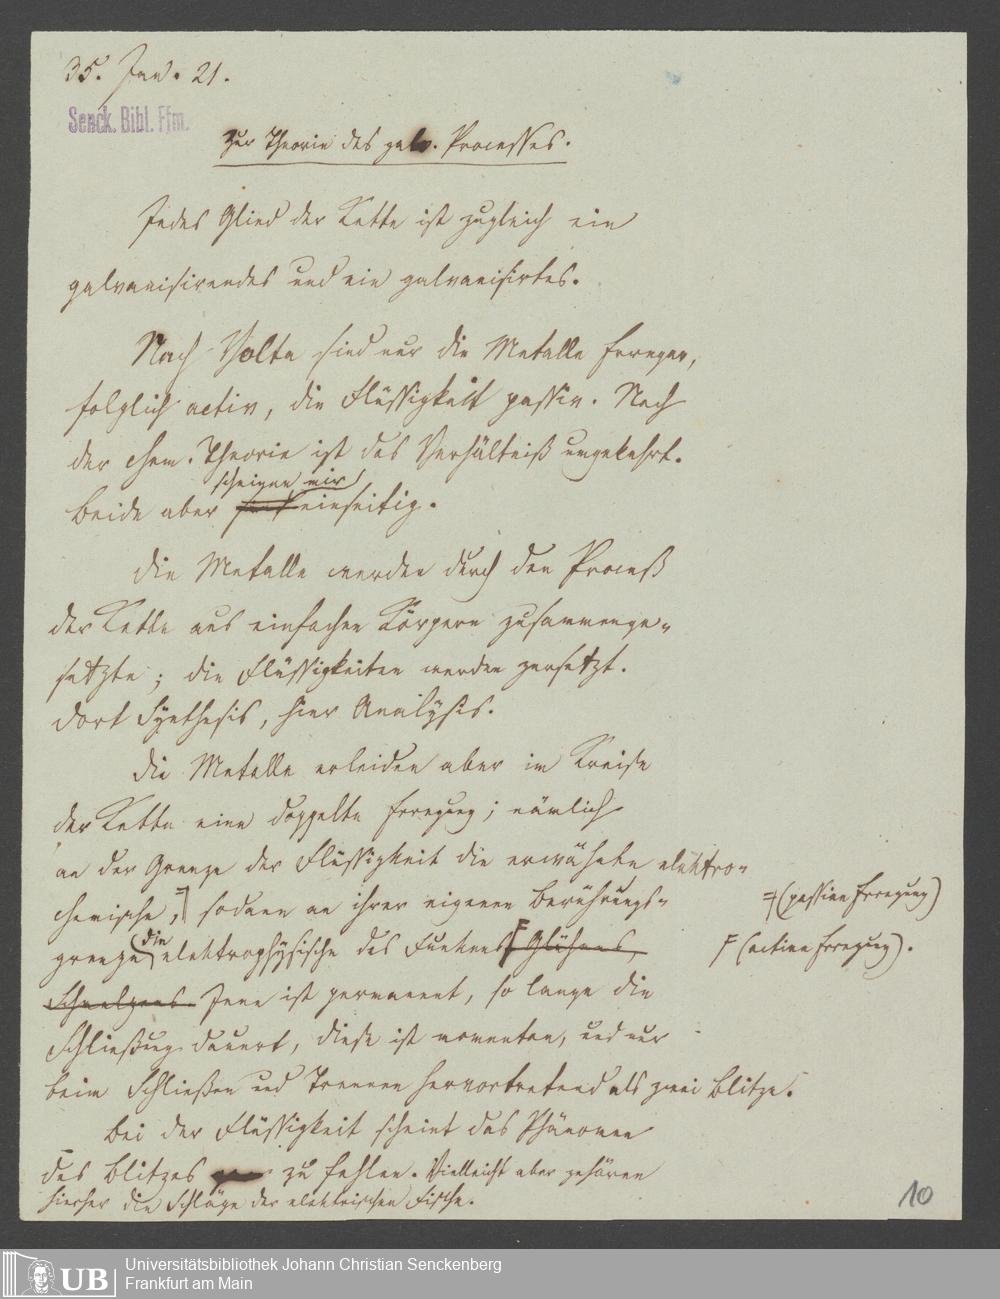 35. Jan. 21.
Senck. Bibl. Ffm.
Zur Theorie des galv. Processes.
Jedes Glied der Kette ist zugleich ein
galvanisirendes und ein galvanisirtes.
Nach Volta sind nur die Metalle Erreger,
folglich activ, die Flüssigkeit passiv. Nach
der chem. Theorie ist das Verhältniß umgekehrt.
scheinen mir
Beide aber sind einseitig.
Die Metalle werden durch den Proceß
der Kette aus einfachen Körpern zusammenge-
setzte; die Flüssigkeiten werden zersetzt.
Dort Synthesis, hier Analysis.
Die Metalle erleiden aber im Kreise
der Kette eine doppelte Erregung; nämlich
an der Grenze der Flüssigkeit die erwähnte elektro-
chemische, sodann an ihrer eigenen Berührungs-
(passive Erregung)
grenze die elektrophysische des Funkens Glühens,
F (active Erregung).
Schmelzens Jene ist permanent, so lange die
Schließung dauert, diese ist momentan, und nur
beim Schließen und Trennen hervortretend als zwei Blitze.
Bei der Flüssigkeit scheint das Phänomen
des Blitzes zu fehlen. Vielleicht aber gehören
hierher die Schläge der elektrischen Fische.
10
UB
Universitätsbibliothek Johann Christian Senckenberg
Frankfurt am Main